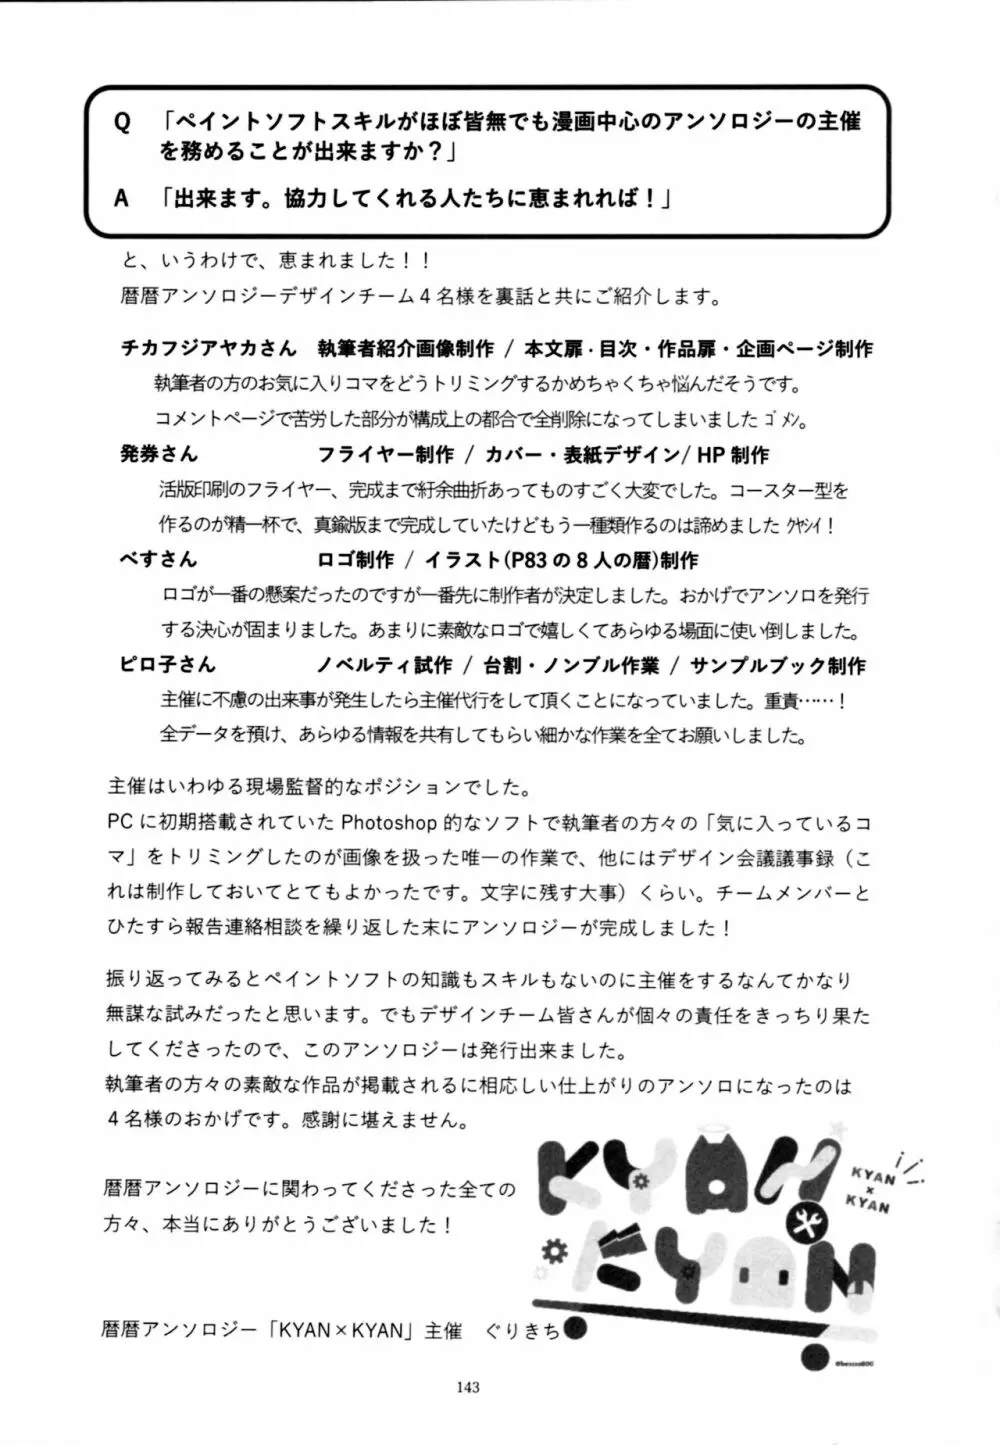 Q 「ペイントソフトスキルがほぼ皆無でも漫画中心のアンソロジーの主催
を務めることが出来ますか？」
A 「出来ます。協力してくれる人たちに恵まれれば！」
と、いうわけで、恵まれました！！
暦暦アンソロジーデザインチーム４名様を裏話と共にご紹介します。
チカフジアヤカさん 執筆者紹介画像制作 / 本文扉・目次・作品扉・企画ページ制作
執筆者の方のお気に入りコマをどうトリミングするかめちゃくちゃ悩んだそうです。
コメントページで苦労した部分が構成上の都合で全削除になってしまいました ｺﾞﾒﾝ。
発券さん フライヤー制作 / カバー・表紙デザイン/ HP 制作
活版印刷のフライヤー、完成まで紆余曲折あってものすごく大変でした。コースター型を
作るのが精一杯で、真鍮版まで完成していたけどもう一種類作るのは諦めました ｸﾔｼｲ！
べすさん ロゴ制作 / イラスト(P83 の 8 人の暦)制作
ロゴが一番の懸案だったのですが一番先に制作者が決定しました。おかげでアンソロを発行
する決心が固まりました。あまりに素敵なロゴで嬉しくてあらゆる場面に使い倒しました。
ピロ子さん ノベルティ試作 / 台割・ノンブル作業 / サンプルブック制作
主催に不慮の出来事が発生したら主催代行をして頂くことになっていました。重責……！
全データを預け、あらゆる情報を共有してもらい細かな作業を全てお願いしました。
主催はいわゆる現場監督的なポジションでした。
PC に初期搭載されていた Photoshop 的なソフトで執筆者の方々の「気に入っているコ
マ」をトリミングしたのが画像を扱った唯一の作業で、他にはデザイン会議議事録（こ
れは制作しておいてとてもよかったです。文字に残す大事）くらい。チームメンバーと
ひたすら報告連絡相談を繰り返した末にアンソロジーが完成しました！
振り返ってみるとペイントソフトの知識もスキルもないのに主催をするなんてかなり
無謀な試みだったと思います。でもデザインチーム皆さんが個々の責任をきっちり果た
してくださったので、このアンソロジーは発行出来ました。
執筆者の方々の素敵な作品が掲載されるに相応しい仕上がりのアンソロになったのは
４名様のおかげです。感謝に堪えません。
暦暦アンソロジーに関わってくださった全ての
方々、本当にありがとうございました！
KYAN
KYAN
KYAN
×
KYAN
暦暦アンソロジー「KYAN×KYAN」主催 ぐりきち
143